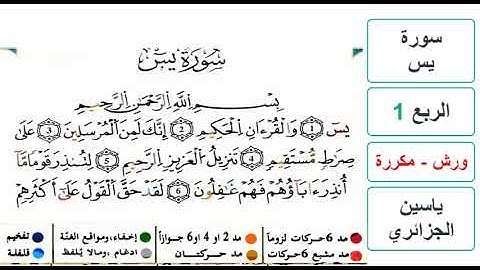 سُورَةُ يسٓ
بِسْمِ اللَّهِ الرَّحْمَٰنِ الرَّحِيمِ
يسٓ 1 وَالْقُرْءَانِ الْحَكِيمِ 2 إِنَّكَ لَمِنَ الْمُرْسَلِينَ 3 عَلَىٰ
صِرَٰطٍ مُّسْتَقِيمٍ 4 تَنزِيلُ الْعَزِيزِ الرَّحِيمِ 5 لِتُنذِرَ قَوْمًا مَّآ
أُنذِرَ ءَابَآؤُهُمْ فَهُمْ غَٰفِلُونَ 6 لَقَدْ حَقَّ الْقَوْلُ عَلَىٰٓ أَكْثَرِهِمْ
سورة
يس
الربع 1
ورش - مكررة
ياسين
الجزائري
مد 6 حركات لزوماً
مد 2 أو 4 او 6 جوازاً
إخفاء، ومواقع الغنّة
تفخيم
مد مشبع 6 حركات
مد حركتان
ادغام، ومالا يُلفظ
قلقلة